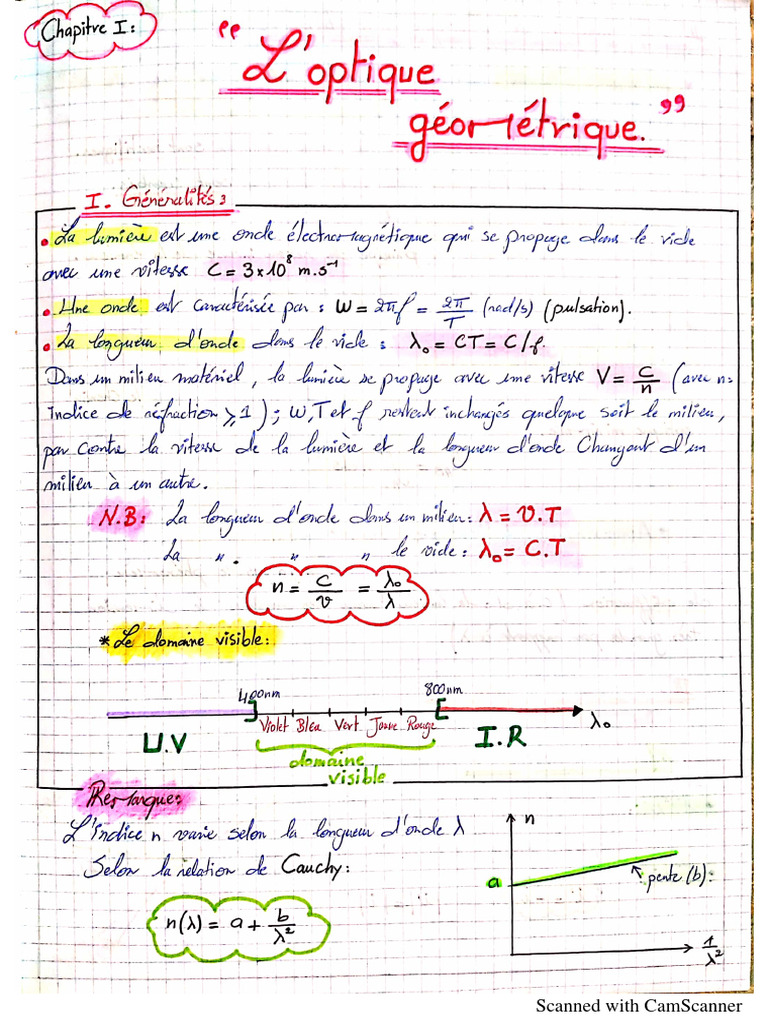 Chapitre I:
" L'optique
géométrique. "
I. Généralités:
• La lumière est une onde électromagnétique qui se propage dans le vide
avec une vitesse C = 3×10⁸ m.s⁻¹
• Une onde est caractérisée par : W = 2πf = 2π/T (rad/s) (pulsation).
• La longueur d'onde dans le vide : λ₀ = CT = C/f.
Dans un milieu matériel, la lumière se propage avec une vitesse V = C/n (avec n:
indice de réfraction ⩾ 1) ; W, T et f restent inchangés quelque soit le milieu,
par contre la vitesse de la lumière et la longueur d'onde changent d'un
milieu à un autre.
N.B: La longueur d'onde dans un milieu: λ = v.T
La " . " " le vide: λ₀ = C.T
n = C/v = λ₀/λ
* Le domaine visible:
400nm 800nm
Violet Bleu Vert Jaune Rouge λ₀
U.V I.R
domaine
visible
Remarque:
L'indice n varie selon la longueur d'onde λ
Selon la relation de Cauchy:
n(λ) = a + b/λ²
n
a
pente (b):
1/λ²
Scanned with CamScanner